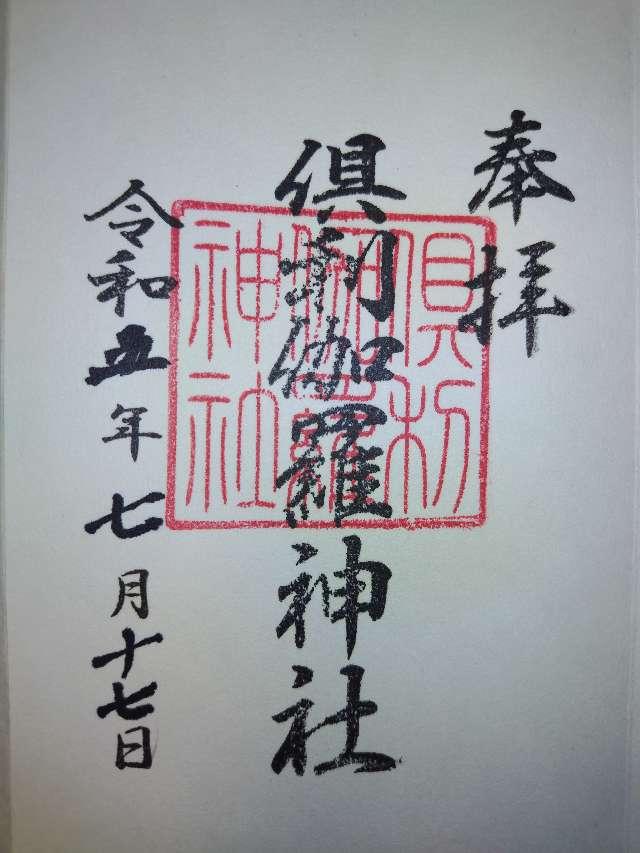 奉拝
倶利伽羅神社
倶利
伽羅
神社
令和五年七月十七日